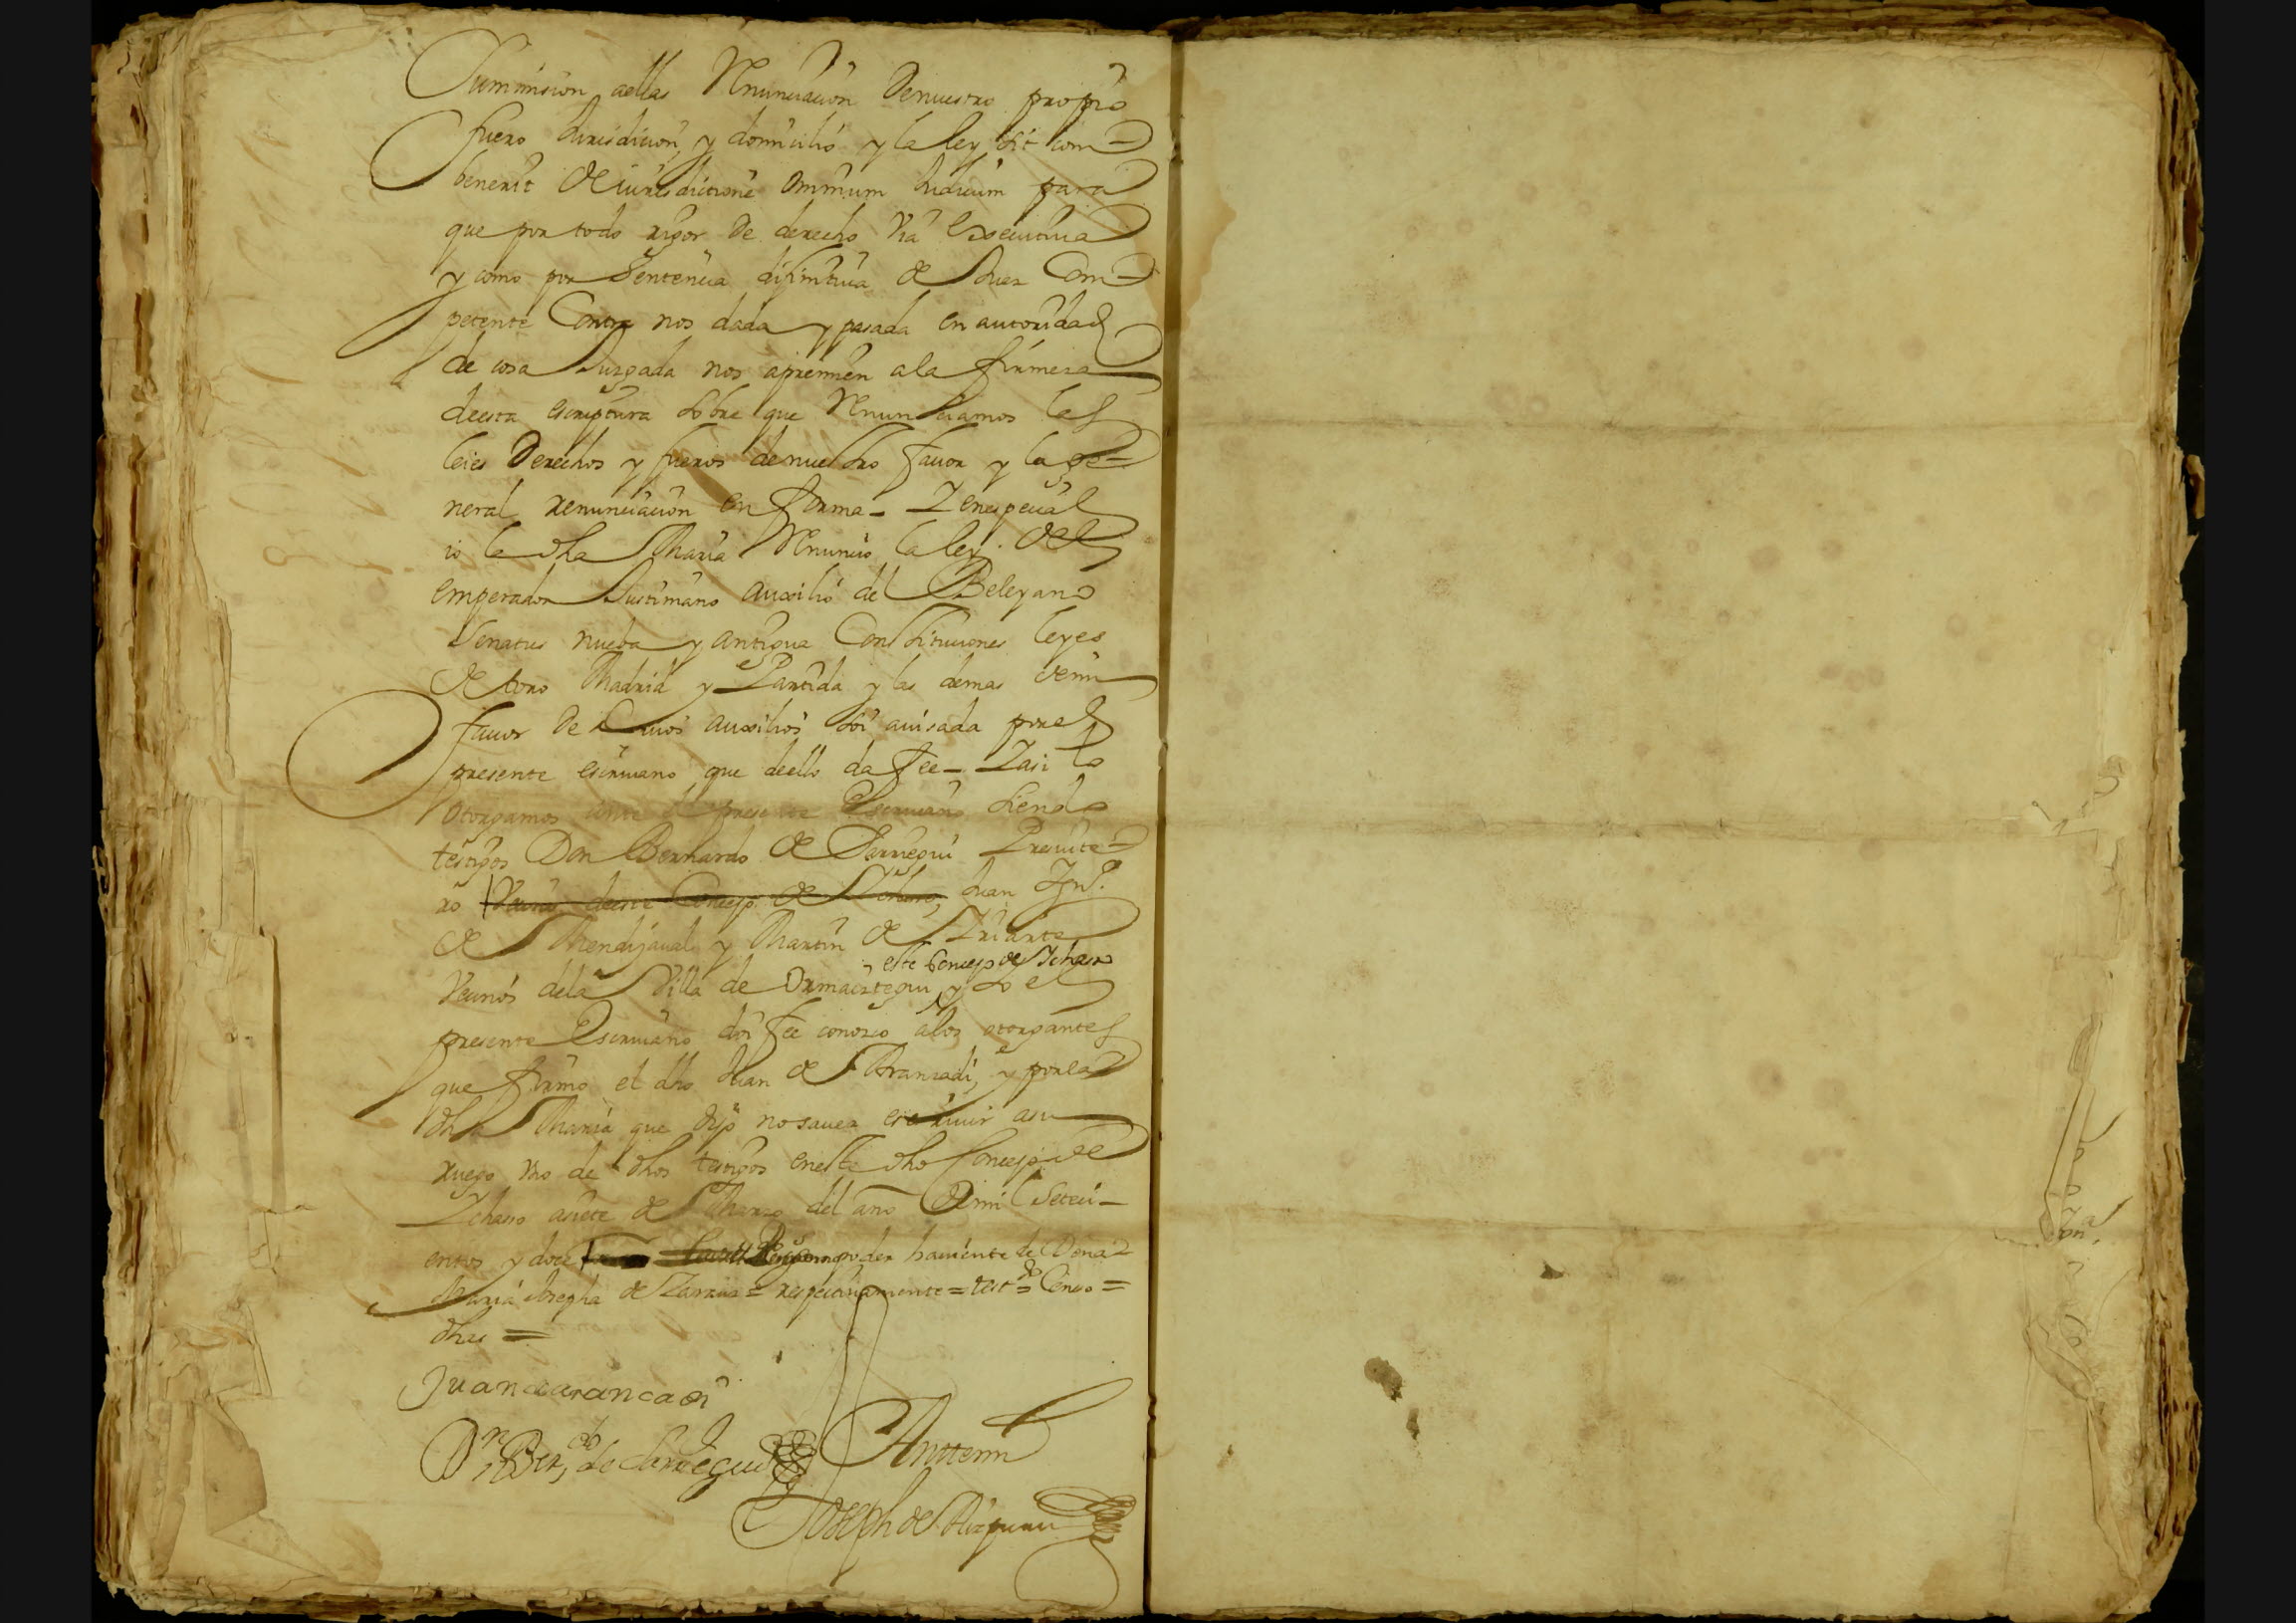 Summision aellas Renunciacion denuestro proprio
fuero Jurisdicion, y domicilio y la ley sit com-
benerit de iurisdictione omnium Judicum para
que por todo rigor de derecho via executiva
y como por Sentencia difinitiva de Juez Com-
petente Contra nos dada y pasada en autoridad
de cosa Juzgada nos apremien ala firmeza
deesta escriptura sobre que Renunciamos las
leies Derechos y fueros denuestro favor y la ge-
neral renunciacion en forma - Y enespecial
io la dha Maria Renuncio la ley del
emperador Justiniano auxilio del Beleyano
Senatus nueba y antigua Constituciones leyes
de toro Madrid y Partida y las demas demi
favor de Cuios auxilios soi avisada por el
presente escrivano que deello da fee - Y asi lo
otorgamos ante el presente Escrivano siendo
testigos Don Bernardo de Sarregui Presvite-
ro Vecino deeste Concejo de Ichaso, Juan Ign.º
de Mendizaval y Martin de Iriarte
este Concejo de Ichaso
Vecinos dela Villa de Ormaiztegui y Io el
presente Escrivano doi fee conozco alos otorgantes
que firmo el dho Juan de Aranzadi, y porla
dha Maria que dijo nosaver escrivir asu
ruego Vno de dhos testigos eneste dho Concejo de
Ichaso asiete de Marzo del año Demil Seteci-
entos y doce poder haviente de Dona
Maria Josepha de = respectivamente = test.do Censo =
dhas =
Juan de arancadi
Dn Ber,do de Sarregui
Anttemi
Joseph de Aizpuru